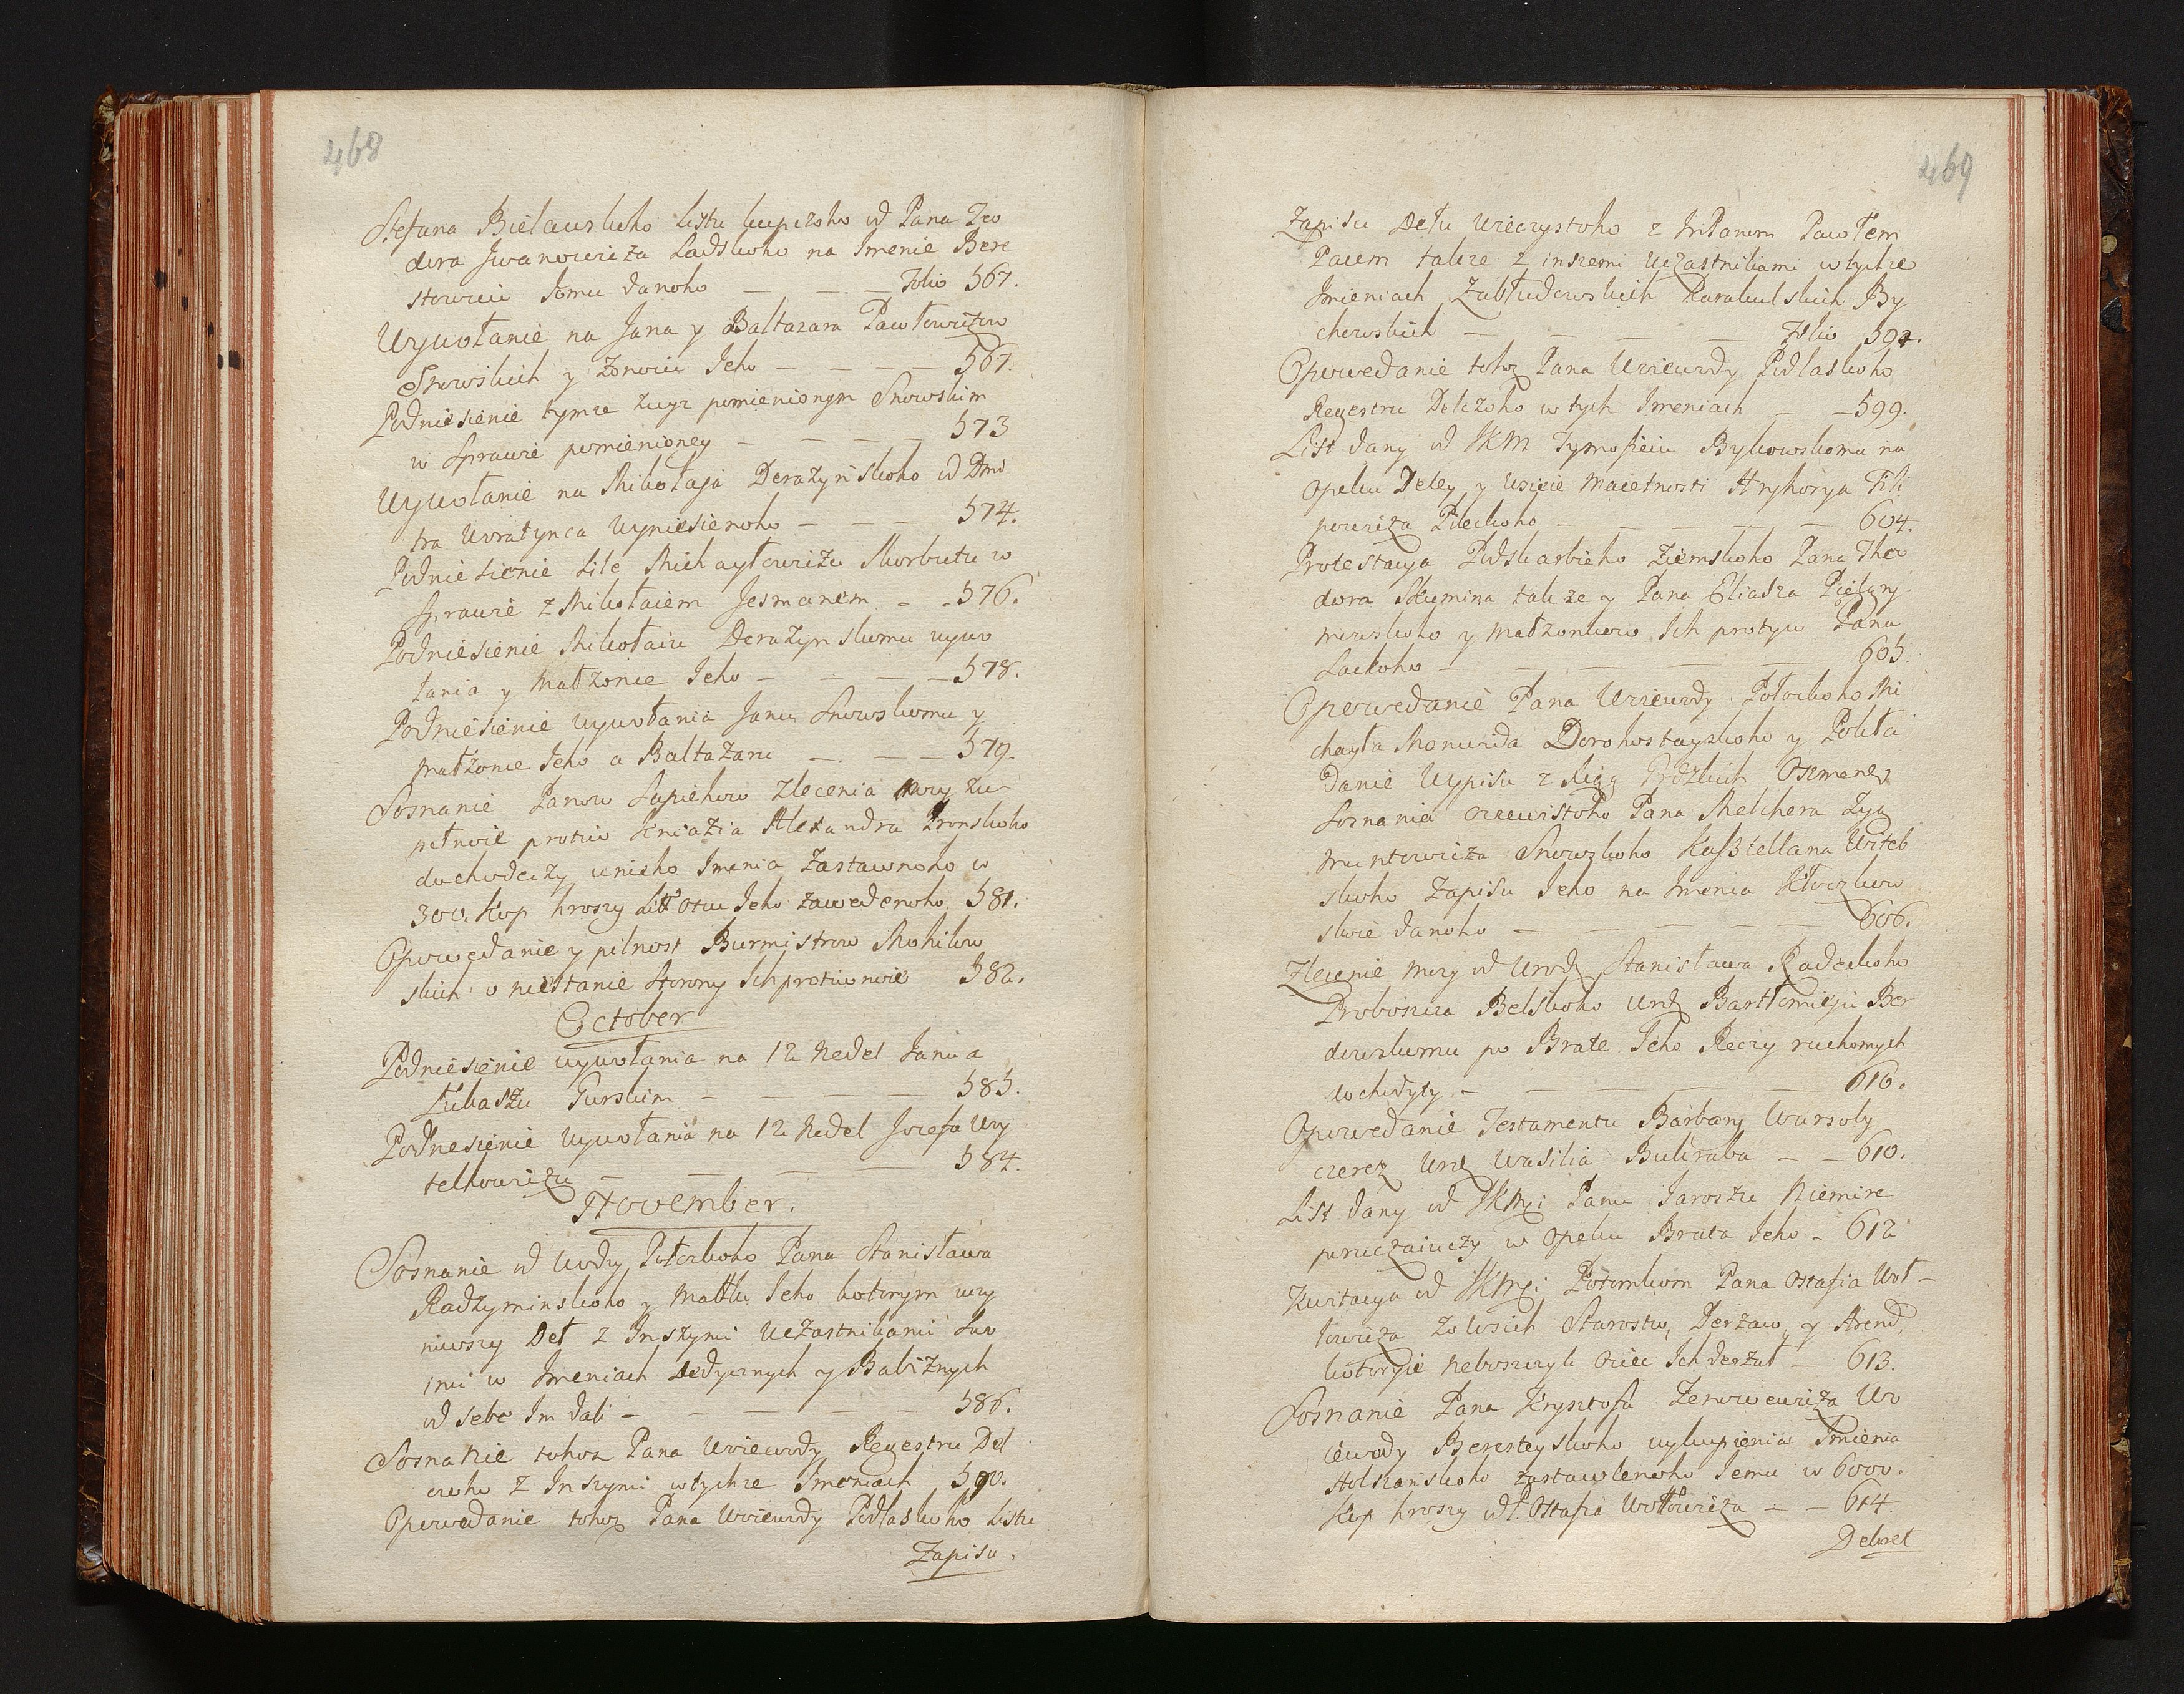 468
Stefana Bielawskoho listu kupczoho od Pana Teo
dora Jwanowicza Ladskoho na Jmenie Bere
stowicu Jomu danoho — — Folio 567.
Wywołanie na Jana y Baltazara Pawłowiczow
Snowskich y Zonowiu Jeho — — — — 567.
Podniesienie tymze zwyz pomienionym Snowskim
w Sprawie pomienioney — — — — 573
Wywołanie na Mikołaja Derażynskoho od Dmi
tra Woratynca Wyniesienoho — — — 574.
Podniesienie Lile Michayłowiczu Skorbutu w
Sprawie z Mikołaiem Jesmanem — — 576.
Podniesienie Mikołaiu Deražynskomu wywo
łania y Małzonce Jeho — — — — 578.
Podniesienie wywołania Janu Snowskomu y
Małzonce Jeho a Baltazaru — — — 579.
Sosnanie Panow Sapiehow Zlecenia Mocy zu-
pełnoie protiw Kniazia Alexandra Pronskoho
dochodeczy unieho Jmenia Zastawnoho w
300. Kop hroszy Litt Otcu Jeho zawedenoho 581.
Opowedanie y pilnost Burmistrow Mohilow
skich o niestanie storony Ich protiwnoie 582.
October
Podniesienie wywołania na 12 nedel Janu a
Lukaszu Gurskim — — — — 583.
Podnesienie Wywołania na 12 Nedel Jozefa Wy
telkowiczu — — — — 584.
November.
Sosnanie od Wody Połockoho Pana Stanisława
Radzyminskoho y Małku Jeho kotorym wczy
niwszy Deł z Jnszymi Uczastnikami Swo
imi w Jmeniach Dedycznych y Babiznych
od sebe Im dali — — — — — 586.
Sosnanie tohoz Pana Woiewody Regestru Del
czoho z Jnszymi wtychze Jmeniach 590.
Opowedanie tohoz Pana Woiewody Podlaskoho Listu
Zapisu.
469
Zapisu Dełu Wieczystoho z JnPanem Pawłem
Pacem takze z inszemi Uczastnikami wtychze
Jmieniach Zabłudowskich Karakulskich By
chowskich — — — — Folio 594.
Opowedanie tohoz Pana Woiewody Podlaskoho
Regestru Delczoho w tych Jmeniach — — 599.
List dany od JKM Tymofieiu Bykowskomu na
Opeku Detey y Wsieie Maietnosti Hryhorya Fili
powicza Pileckoho — — — — — 604.
Protestacya Podskarbieho Ziemskoho Pana Theo
dora Skumina takze y Pana Eliasza Pielgrzy
mowskoho y małzonkow Ich protyw Pana
Lackoho — — — — 605.
Opowedanie Pana Woiewody Połockoho Mi
chayła Monwida Dorohostayskoho y Pokła
danie Wypisu z Kięg Grodzkich Oszmensz
Sosnania oczewistoho Pana Melchera Zyg
muntowicza Snowzkoho Kasztellana Witeb
skoho Zapisu Jeho na Jmenia Kłoczkow
skoie danoho — — — — — 606.
Zlecenie mocy od Urodz Stanisława Radeckoho
Proboszcza Belskoho Urodz Bartłomieju Ber
dowskomu po Brate Jeho Reczy ruchomych
dochodyty — — — — — 610.
Opowedanie Testamentu Barbary Warsoby
czerez Urodz Wasilia Bukraba — — 610.
List dany od JKMci Panu Jaroszu Niemire
poruczaiuczy w Opeku Brata Jeho — 612
Kwitacya od JKMci Potomkom Pana Ostafia Woł-
łowicza Zowsich Starostw, Derżaw, y Arend,
kotoryie neboszczyk Otiec Ich derżał — 613.
Sosnanie Pana Krysztofa Zenowewicza Wo
iewody Beresteyskoho wykupienia Jmienia
Holszanskoho zastawlenoho Jemu w 6000.
Kop hroszy od P. Ostafia Wołłowicza — — 614.
Dekret